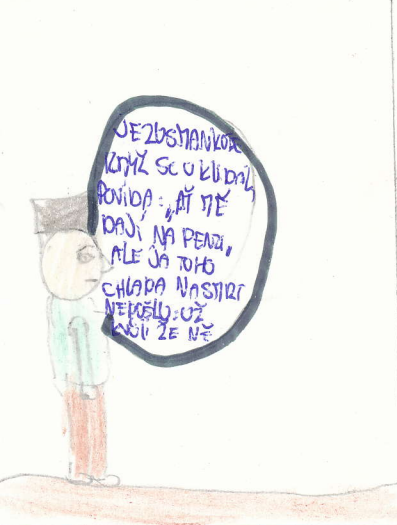 JEZUSMANKOTE
KDYŽ SE UKLIDNIL
POVÍDÁ: „AŤ MĚ
DAJÍ NA PENZI,
ALE JÁ TOHO
CHLAPA NA STIRT
NEPOŠLU. UŽ
KVŮLI ŽE NĚ